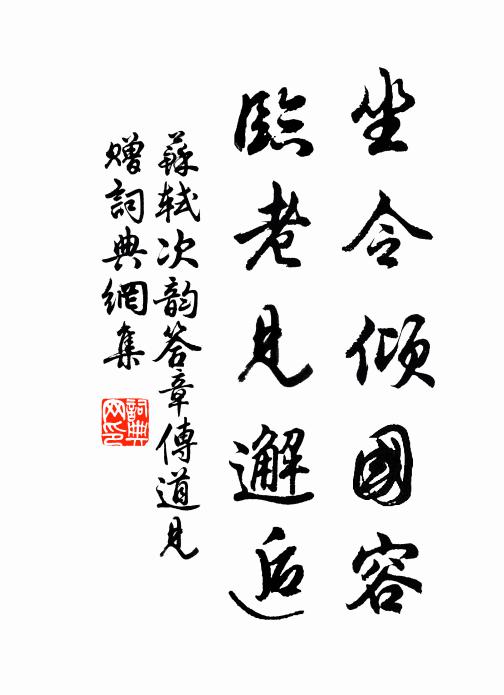 坐令傾國容
臨老見邂逅
蘇軾次韵答章傳道見
贈詞典網集
詞典
网印